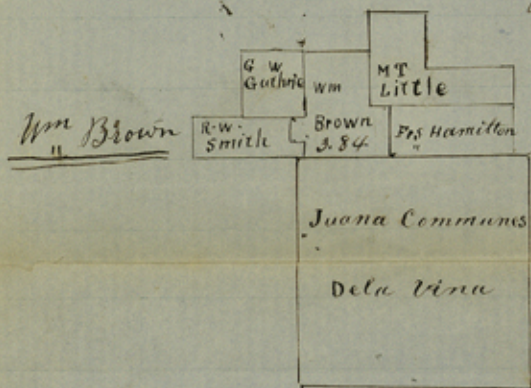 Wm Brown
G W
Guthrie
Wm
Brown
3.84
M T
Little
R.W.
Smith
Frs Hamilton
Juana Communes
Dela Vina